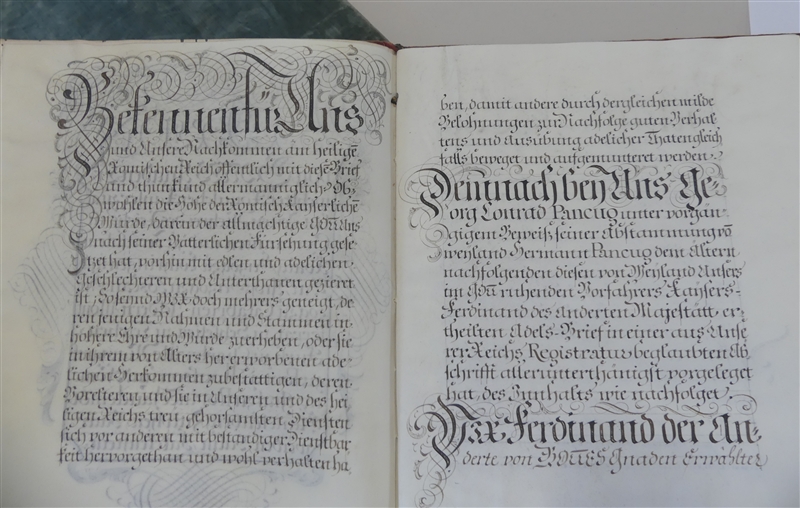 Bekennen für Uns
und Unsere Nachkommen am heilige̅
Römischen Reich öffentlich mit diese̅ Brief
und thun kund allermänniglich: Ob
wohlen die Höhe der Römisch Kayserliche̅
Würde, darein der allmächtige GOtt Uns
nach seiner Vätterlichen Fürsehung gese-
tzet hat, vorhin mit edlen und adelichen
Geschlechteren und Unterthanen gezieret
ist; So seynd Wir doch mehrers geneigt, de-
ren jenigen Nahmen und Stammen in
höhere Ehre und Würde zu erheben, oder sie
in ihrem von Alters her erworbenen ade-
lichen Herkommen zu bestättigen, deren
Vorelteren und sie in Unseren und des hei-
ligen Reichs treu-gehorsamsten Diensten
sich vor anderen mit beständiger Dienstbar-
keit hervorgethan und wohl verhalten ha-
ben, damit andere durch dergleichen milde
Belohnungen zur Nachfolge guten Verhal-
tens und Ausübung adelicher Thaten gleich-
falls beweget und aufgemunteret werden.
Demnach bey Uns Ge-
org Conrad Pancug unter vorgän-
gigem Beweiß seiner Abstammung vo̅
weyland Hermann Pancug dem ältern
nachfolgenden diesen von Weyland Unsers
in GOtt ruhenden Vorfahrers Kaysers-
Ferdinand des Anderten Majestätt, er-
theilten Adels-Brief in einer aus Unse-
rer Reichs Registratur beglaubten Ab-
schrifft allerunterthänigst vorgeleget
hat, des Innhalts wie nachfolget.
Wir Ferdinand der An-
derte von GOTTES Gnaden Erwählter